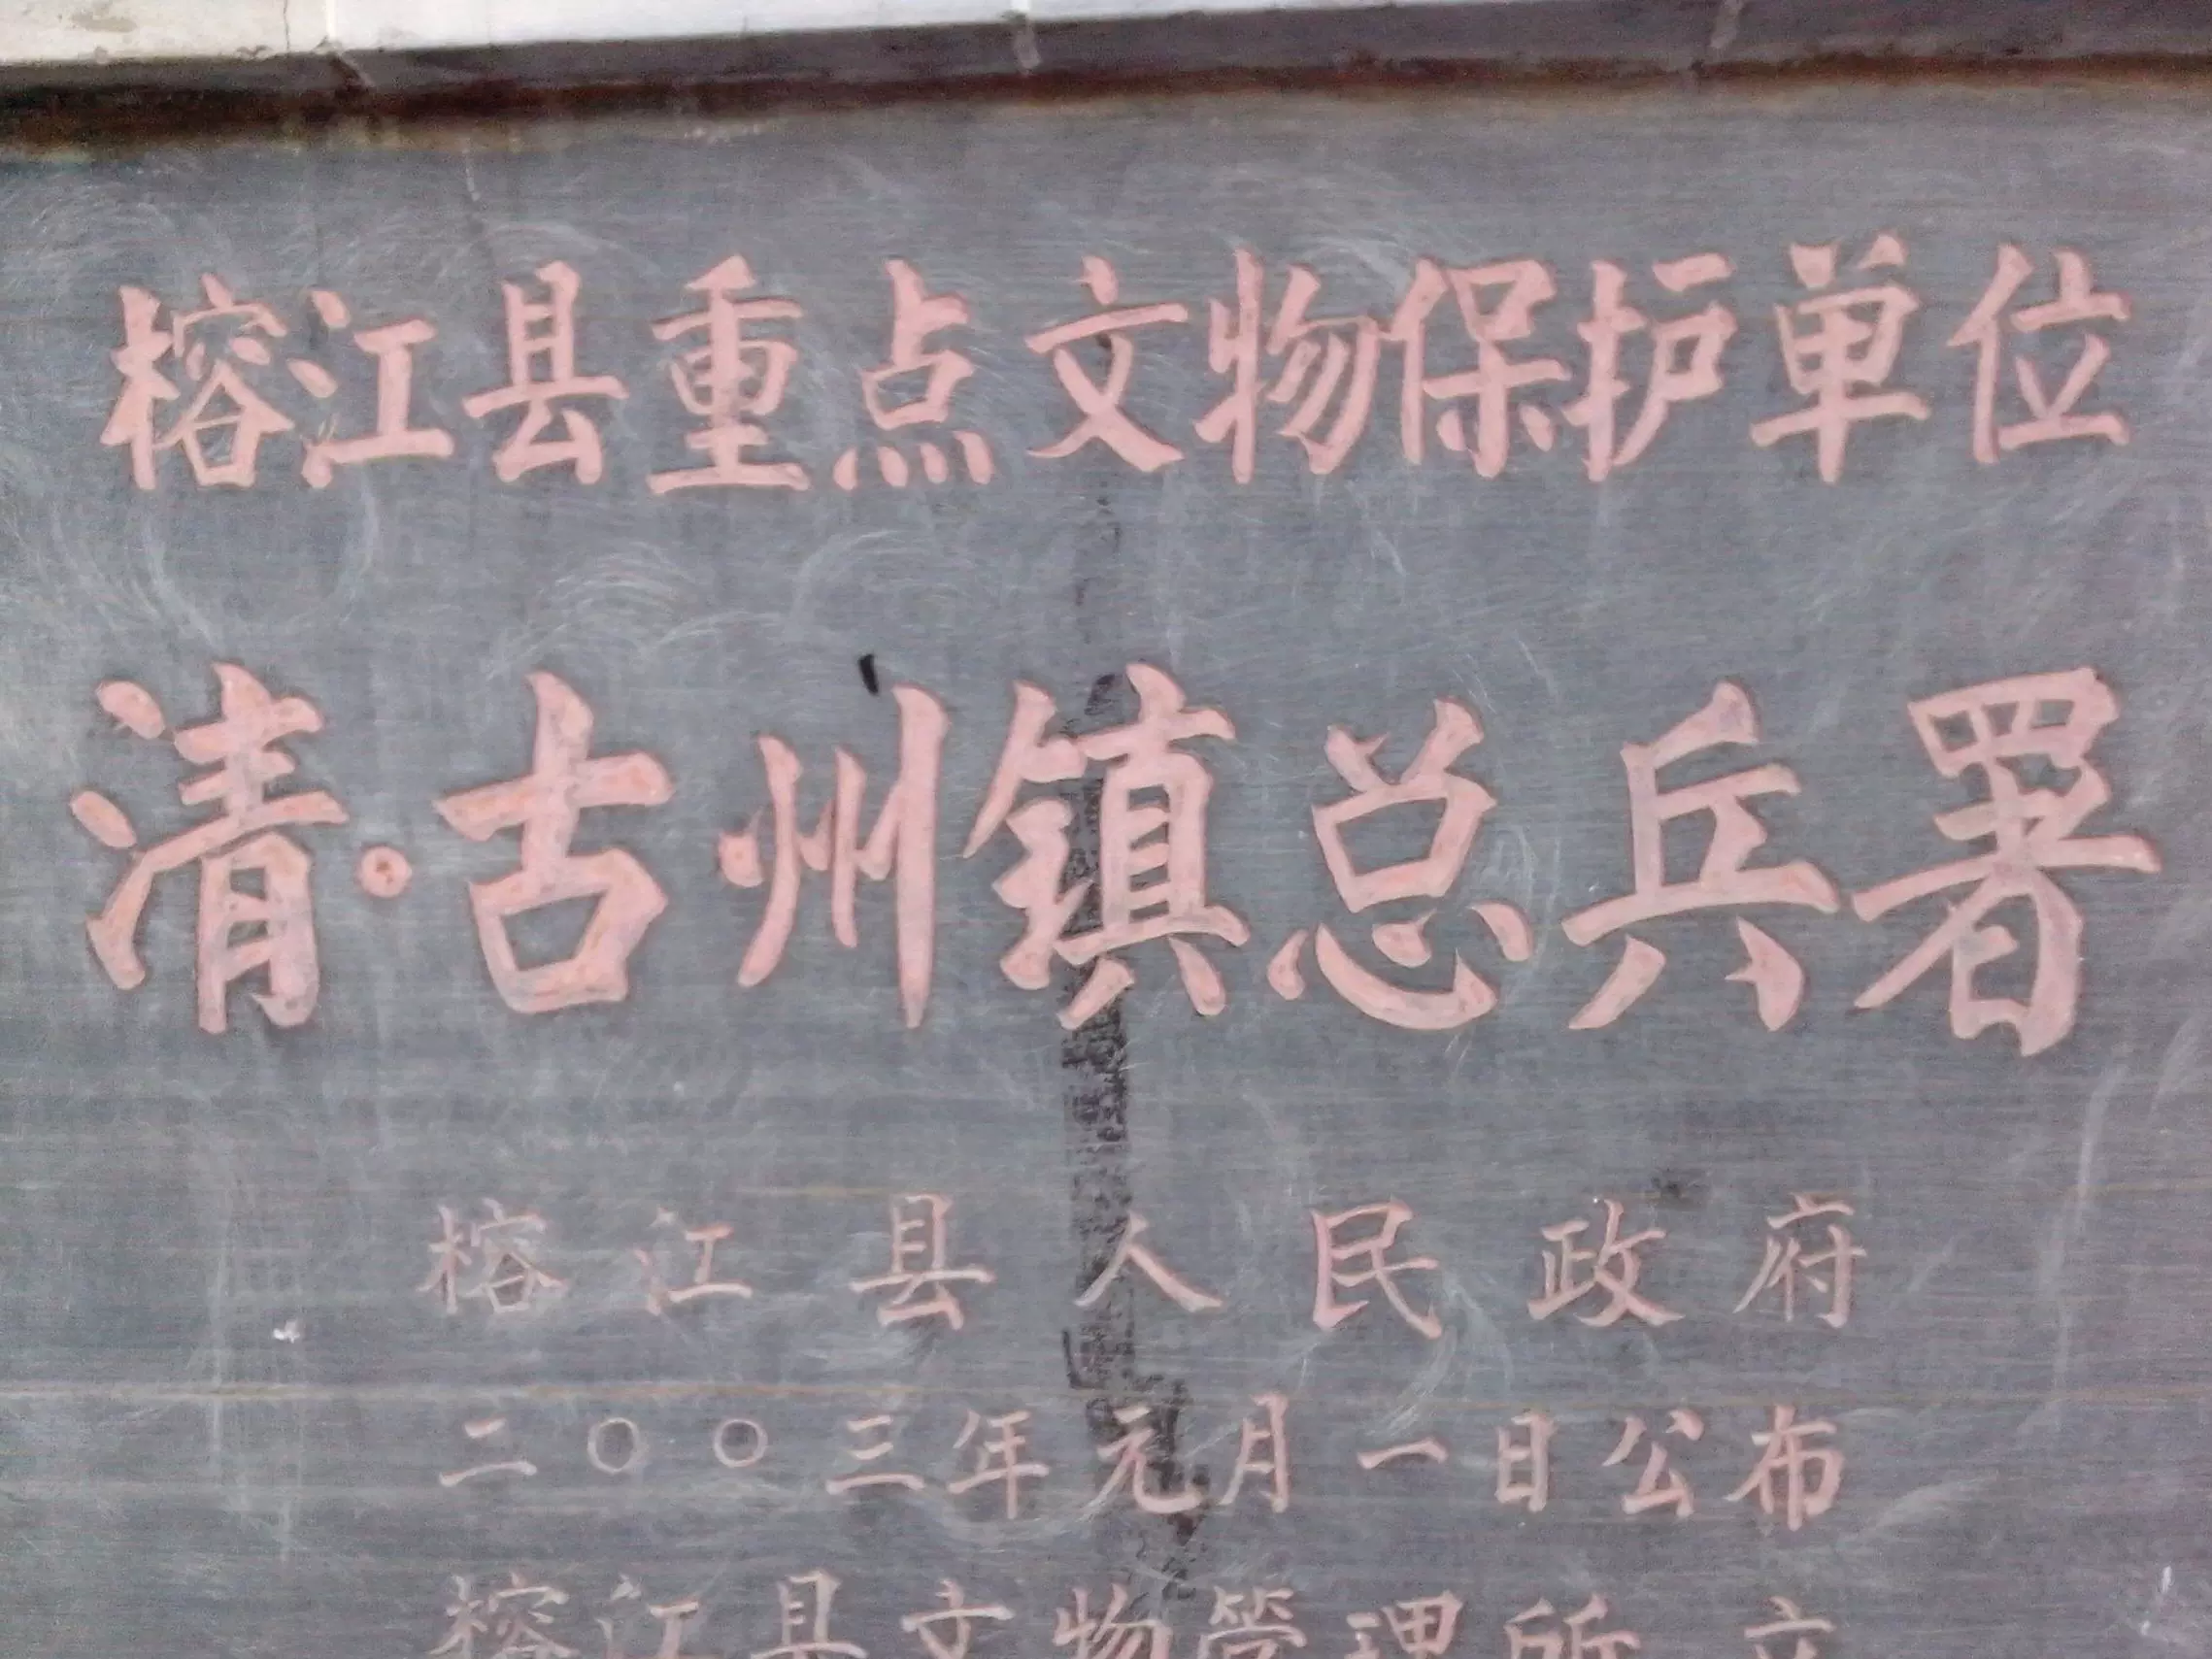 榕江县重点文物保护单位
清·古州镇总兵署
榕江县人民政府
二〇〇三年元月一日公布
榕江县文物管理所立